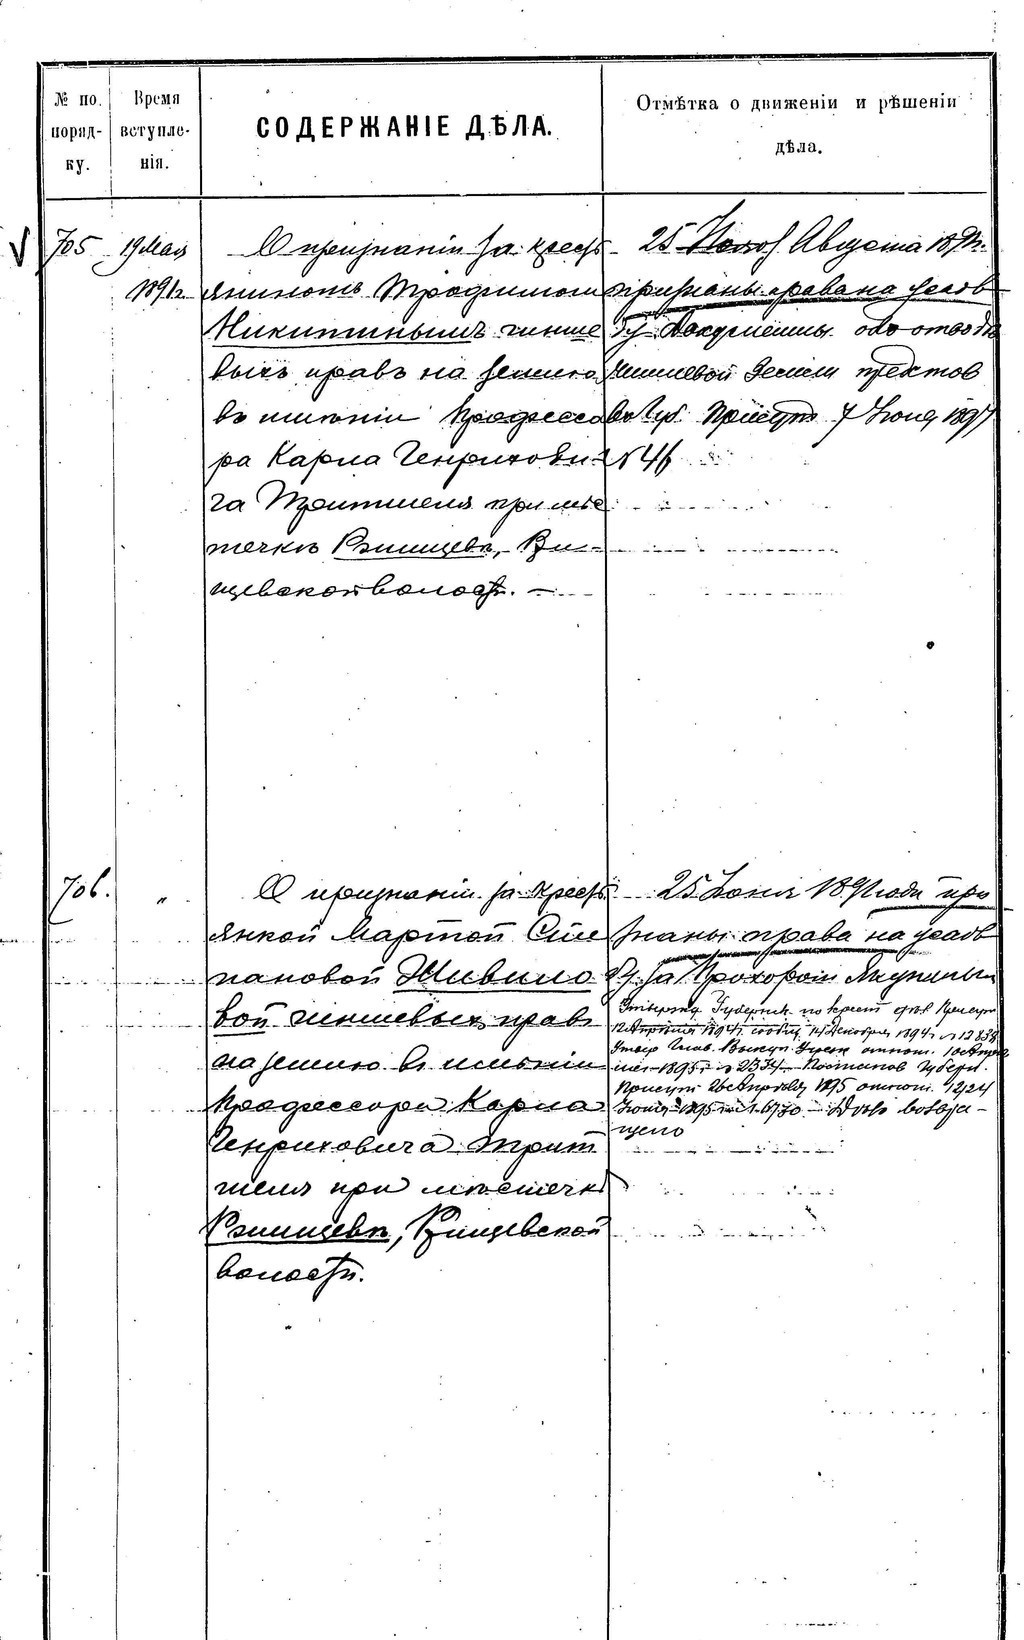 № по.
поряд-
ку.
Время
вступле-
нія.
СОДЕРЖАНІЕ ДѢЛА.
Отмѣтка о движеніи и рѣшеніи
дѣла.
705
19 Мая
1891 г.
О признаніи за кресть
яниномъ Трофимом
Никитинымъ чинше
выхъ правъ на землю
въ имѣніи Професс
ра Карла Генрихови
ча Тритшеля при мѣс
течкѣ Ржищевѣ, Рж
щевской волости.
25 Августа 1891 г.
признаны права на усадь
бу Документы объ отводѣ
чиншевой земли предстов
въ Губ. Присут 7 Іюня 1897
№ 46
706.
"
О признаніи за крест
янкой Мартой Сте
пановой Живило
вой чиншевых прав
на землю в имѣніи
Профессора Карла
Генриховича Трит
шеля при мѣстечкѣ
Ржищевѣ, Ржищевской
волости.
25 Іюня 1891 года при
знаны права на усадь
бу за Прохором
Утвержд Губернск по крест дѣл Присут
12 Апрѣля 1894 г. сообщ 14 Декабря 1894 г. № 12838
Глав. Выкуп. Учреж отнош. 10 Апрѣ
ля 1895 г. № 2334 Постанов Губерн.
Присут 26 Апрѣля 1895 отнош. 12/24
Іюня 1895 № 6730 Дѣло возвра-
щено